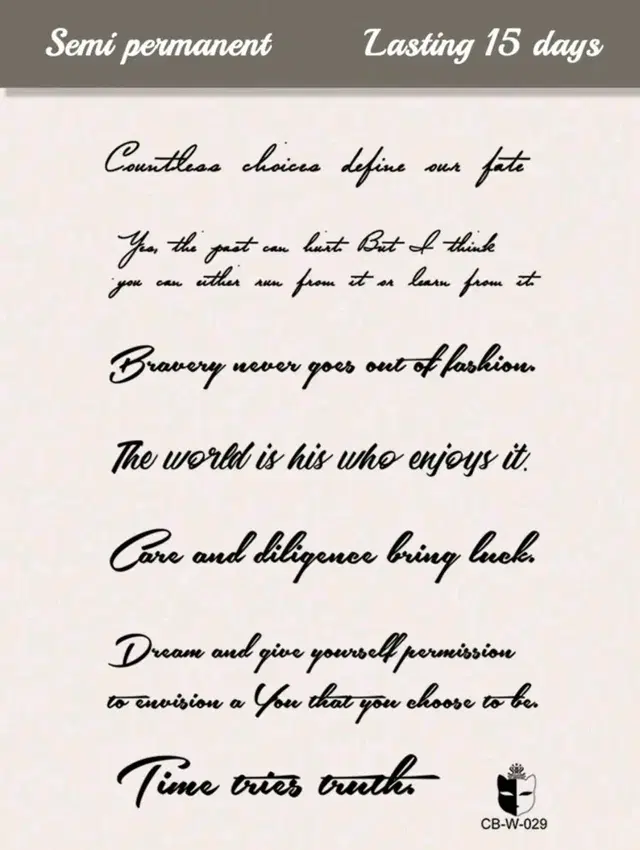 Semi permanent
Lasting 15 days
Countless choices define our fate
Yes, the past can hurt. But I think
you can either run from it or learn from it.
Bravery never goes out of fashion.
The world is his who enjoys it.
Care and diligence bring luck.
Dream and give yourself permission
to envision a You that you choose to be.
Time tries truth.
CB-W-029